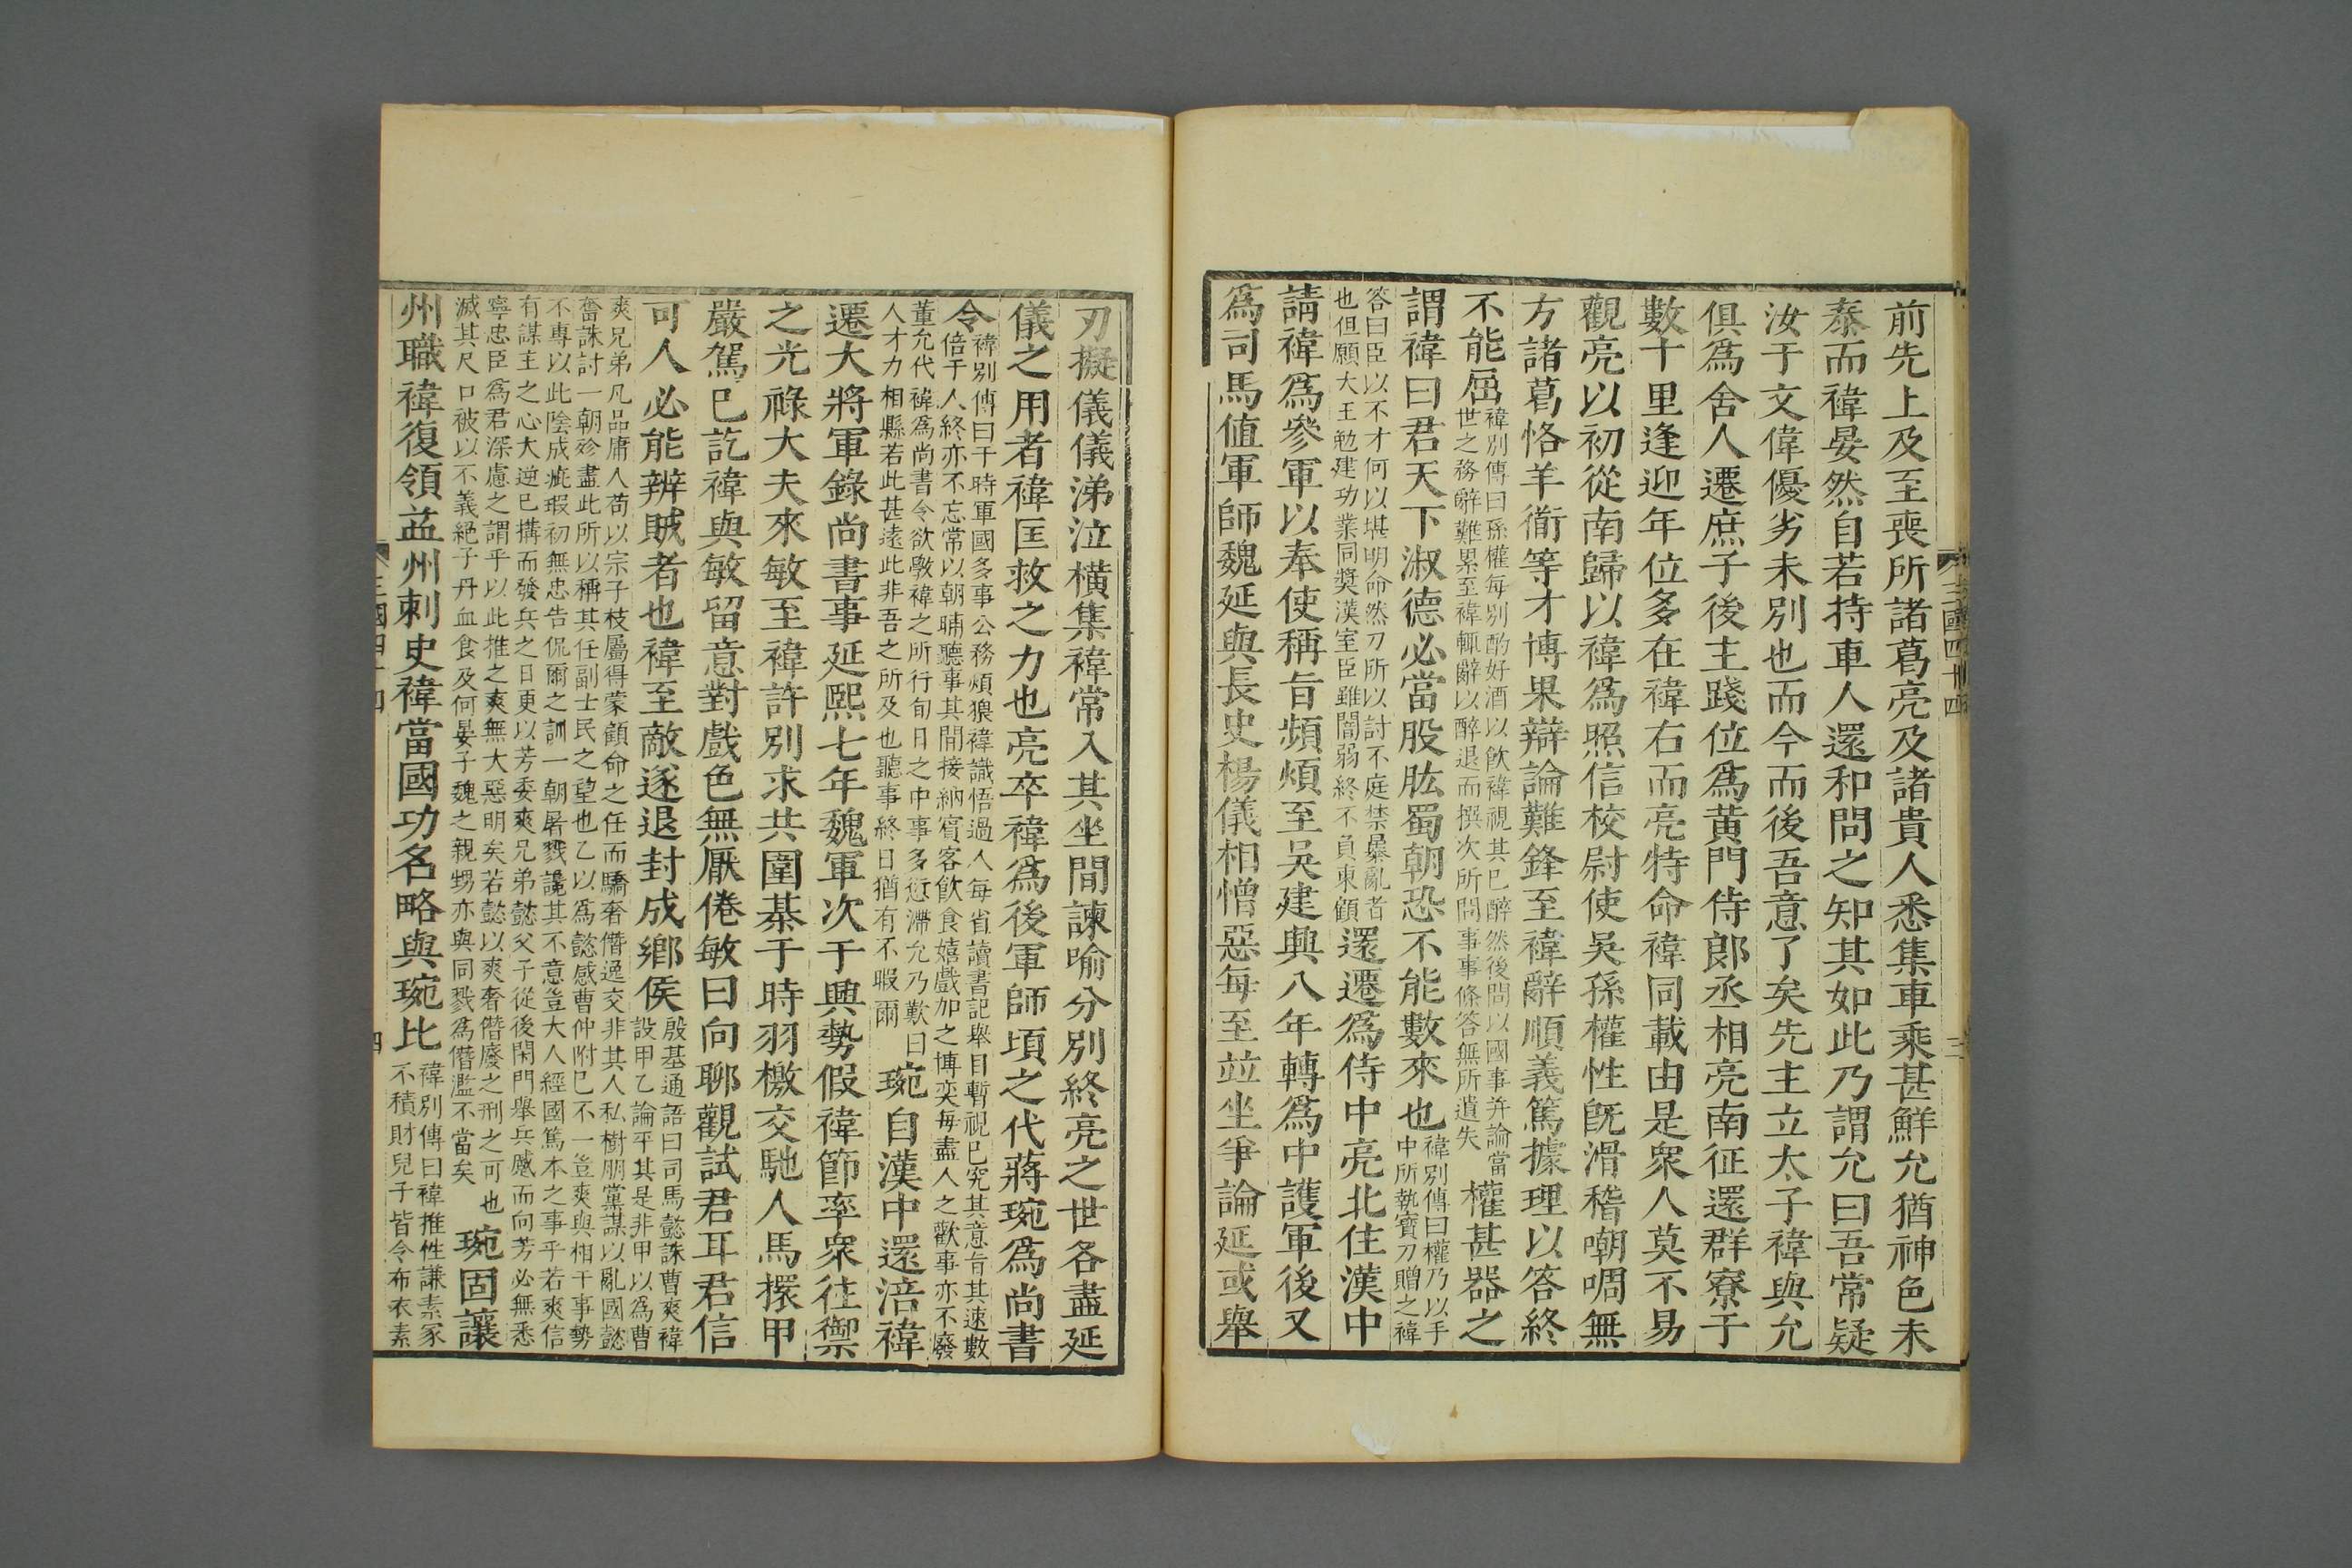 前先上及至喪所諸葛亮及諸貴人悉集車乘甚鮮允猶神色未
泰而禕晏然自若持車人還和問之知其如此乃謂允曰吾常疑
汝于文偉優劣未別也而今而後吾意了矣先主立太子禕與允
俱爲舍人遷庶子後主踐位爲黃門侍郎丞相亮南征還群寮于
數十里逢迎年位多在禕右而亮特命禕同載由是衆人莫不易
觀亮以初從南歸以禕爲昭信校尉使吳孫權性旣滑稽嘲啁無
方諸葛恪羊衜等才博果辯論難鋒至禕辭順義篤據理以答終
不能屈
禕別傳曰孫權每別酌好酒以飲禕視其已醉然後問以國事并論當
世之務辭難累至禕輒辭以醉退而撰次所問事事條答無所遺失
權甚器之
謂禕曰君天下淑德必當股肱蜀朝恐不能數來也
禕別傳曰權乃以手
中所執寶刀贈之禕
答曰臣以不才何以堪明命然刀所以討不庭禁暴亂者
也但願大王勉建功業同獎漢室臣雖闇弱終不負東顧
還遷爲侍中亮北住漢中
請禕爲參軍以奉使稱旨頻煩至吳建興八年轉爲中護軍後又
爲司馬値軍師魏延與長史楊儀相憎惡每至並坐爭論延或舉
三國四十四
三
刃擬儀儀涕泣橫集禕常入其坐間諫喻分別終亮之世各盡延
儀之用者禕匡救之力也亮卒禕爲後軍師頃之代蔣琬爲尚書
令
禕別傳曰于時軍國多事公務煩猥禕識悟過人每省讀書記舉目暫視已究其意旨其速數
倍于人終亦不忘常以朝晡聽事其間接納賓客飲食嬉戲加之博奕每盡人之歡事亦不廢
董允代禕爲尚書令欲斆禕之所行旬日之中事多愆滯允乃歎曰
人才力相縣若此甚遠此非吾之所及也聽事終日猶有不暇爾
琬自漢中還涪禕
遷大將軍錄尚書事延熙七年魏軍次于興勢假禕節率衆往禦
之光祿大夫來敏至禕許別求共圍棊于時羽檄交馳人馬擐甲
嚴駕已訖禕與敏留意對戲色無厭倦敏曰向聊觀試君耳君信
可人必能辨賊者也禕至敵遂退封成鄉侯
殷基通語曰司馬懿誅曹爽禕
設甲乙論平其是非甲以爲曹
爽兄弟凡品庸人苟以宗子枝屬得蒙顧命之任而驕奢僭逸交非其人私樹朋黨謀以亂國懿
奮誅討一朝殄盡此所以稱其任副士民之望也乙以爲懿感曹仲附己不一豈爽與相干事勢
不專以此陰成疵瑕初無忠告侃爾之訓一朝屠戮讒其不意豈大人經國篤本之事乎若爽信
有謀主之心大逆已搆而發兵之日更以芳委爽兄弟懿父子從後閉門舉兵蹙而向芳必無悉
寧忠臣爲君深慮之謂乎以此推之爽無大惡明矣若懿以爽奢僭廢之刑之可也
滅其尺口被以不義絕子丹血食及何晏子魏之親甥亦與同戮爲僭濫不當矣
琬固讓
州職禕復領益州刺史禕當國功名略與琬比
禕別傳曰禕推性謙素家
不積財兒子皆令布衣素
三國四十四
四